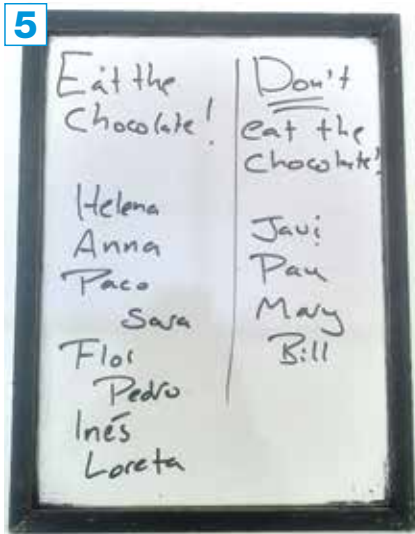 5
Eat the
Chocolate!
Helena
Anna
Paco
Sara
Flor
Pedro
Inés
Loreta
Don't
eat the
chocolate!
Javi
Pau
Mary
Bill